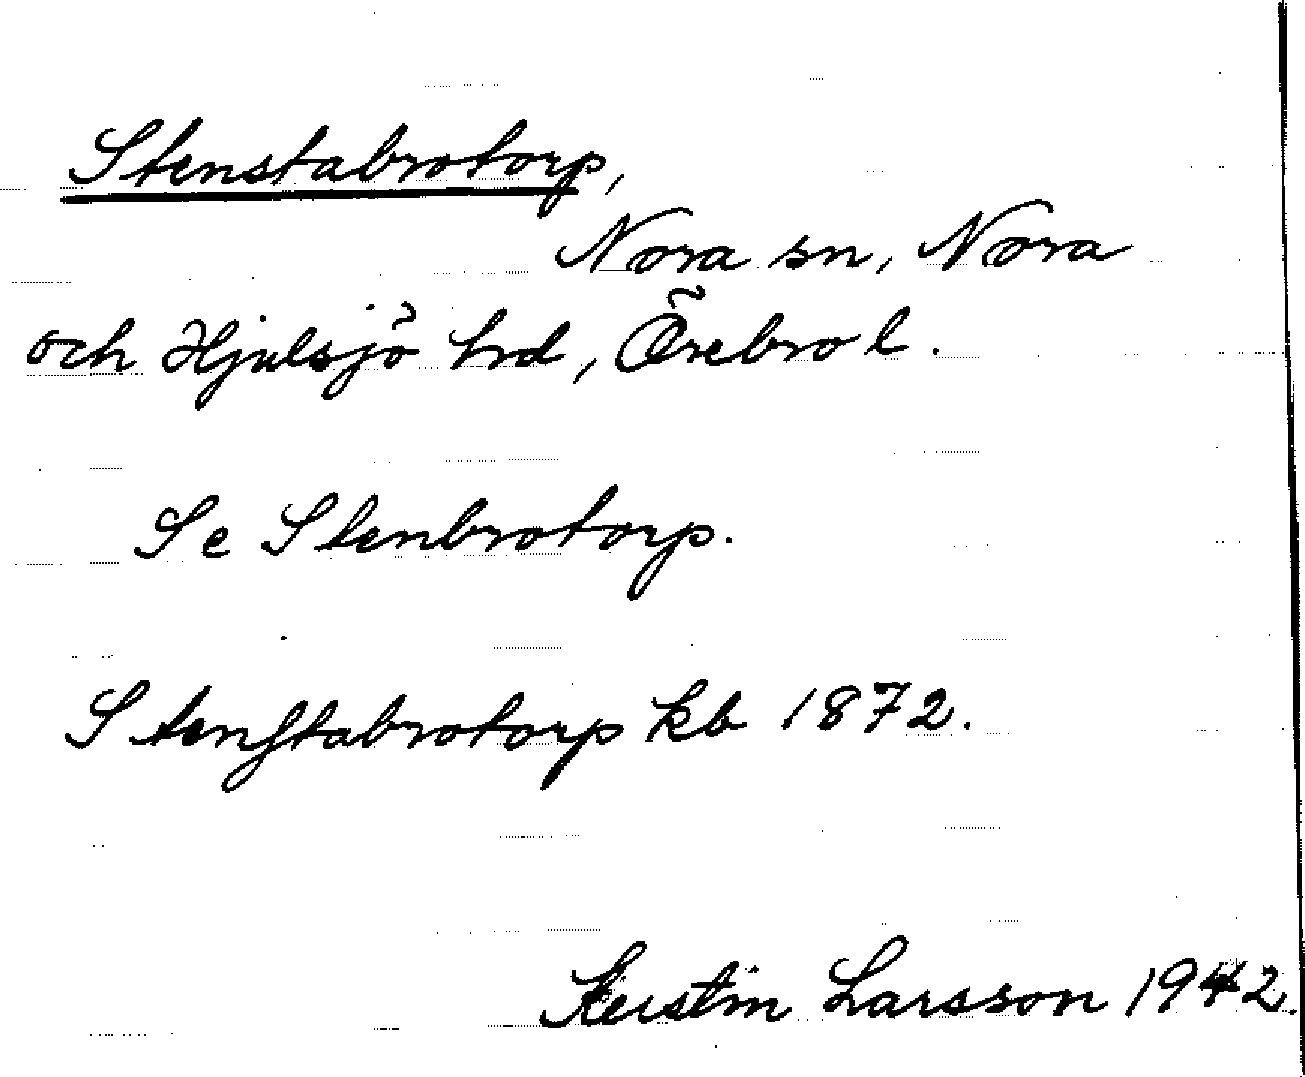 Stenstabrotorp,
Nora sn, Nora
och Hjulsjö hrd, Örebro l.
Se Stenbrotorp.
Stenſtabrotorp kb 1872.
Kerstin Larsson 1942.